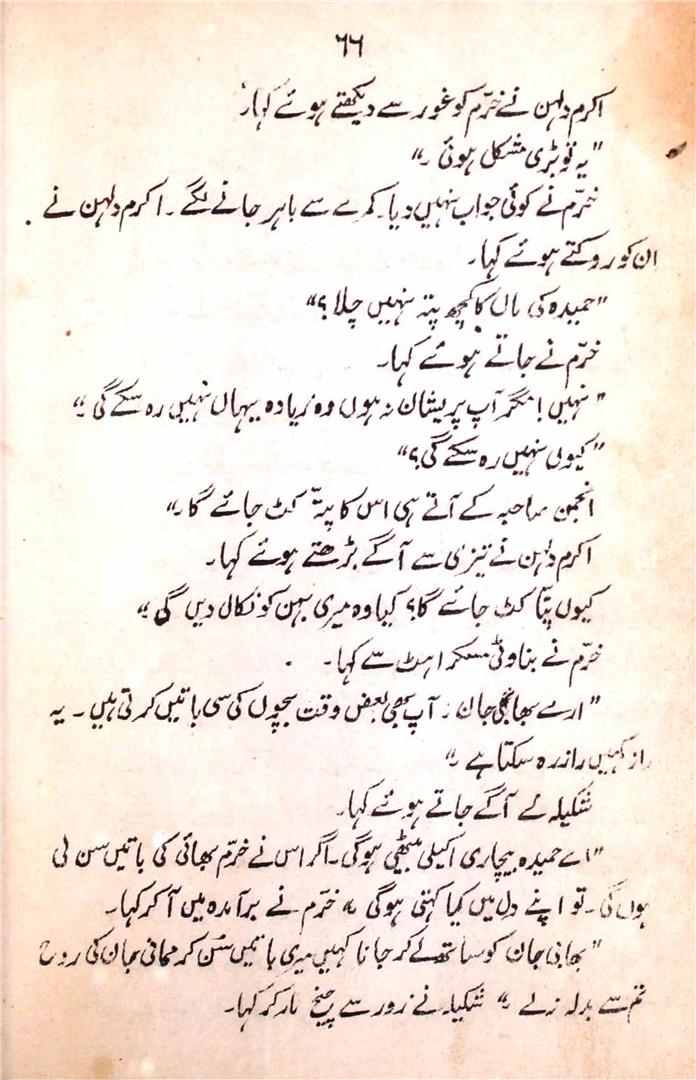 ۶۶
اکرم دلہن نے خرّم کو غور سے دیکھتے ہوئے کہا۔
"یہ تو بڑی مشکل ہوئی۔"
خرّم نے کوئی جواب نہیں دیا۔ کمرے سے باہر جانے لگے۔ اکرم دلہن نے
ان کو روکتے ہوئے کہا۔
"حمیدہ کی ماں کا کچھ پتہ نہیں چلا؟"
خرّم نے جاتے ہوئے کہا۔
"نہیں! مگر آپ پریشان نہ ہوں وہ زیادہ یہاں نہیں رہ سکے گی۔"
"کیوں نہیں رہ سکے گی؟"
انجمن صاحبہ کے آتے ہی اس کا پتّہ کٹ جائے گا۔"
اکرم دلہن نے تیزی سے آگے بڑھتے ہوئے کہا۔
کیوں پتّا کٹ جائے گا؟ کیا وہ میری بہن کو نکال دیں گی۔"
خرّم نے بناوٹی مسکراہٹ سے کہا۔
"ارے بھابھی جان۔ آپ بھی بعض وقت بچوں کی سی باتیں کرتی ہیں۔ یہ
راز کہیں راز رہ سکتا ہے۔"
شکیلہ نے آگے جاتے ہوئے کہا۔
"اے حمیدہ بیچاری اکیلی بیٹھی ہوگی۔ اگر اس نے خرّم بھائی کی باتیں سن لی
ہوں گی۔ تو اپنے دل میں کیا کہتی ہوگی" خرّم نے برآمدہ میں آکر کہا۔
"بھابی جان کو ساتھ لے کر جانا کہیں میری باتیں سُن کر ممانی جان کی روح
تم سے بدلہ نہ لے۔" شکیلہ نے زور سے چیخ مار کر کہا۔